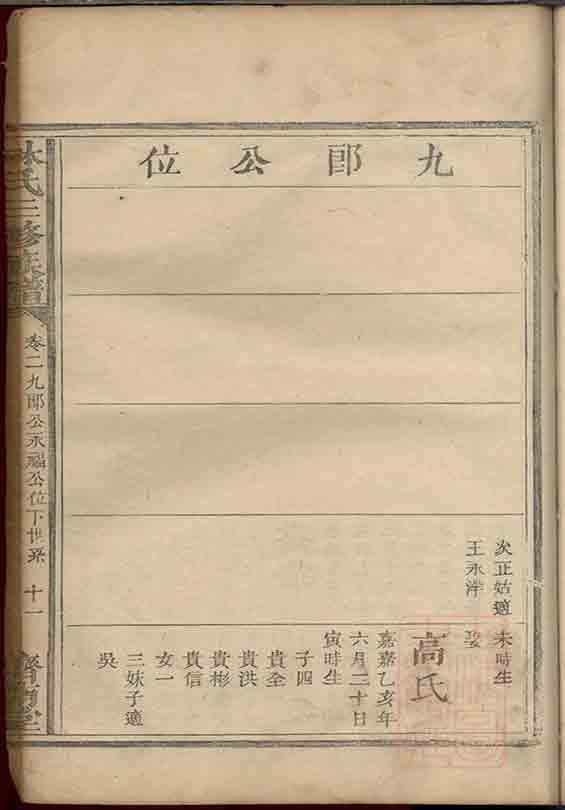 九郎公位
次正姑適
王永滯
未時生
娶
高氏
嘉嘉乙亥年
六月二十日
寅時生
子四
貴全
貴洪
貴彬
貴信
女一
三妹子適
吳
林氏三修族譜
卷二九郎公永福公位下世系
十一
堂